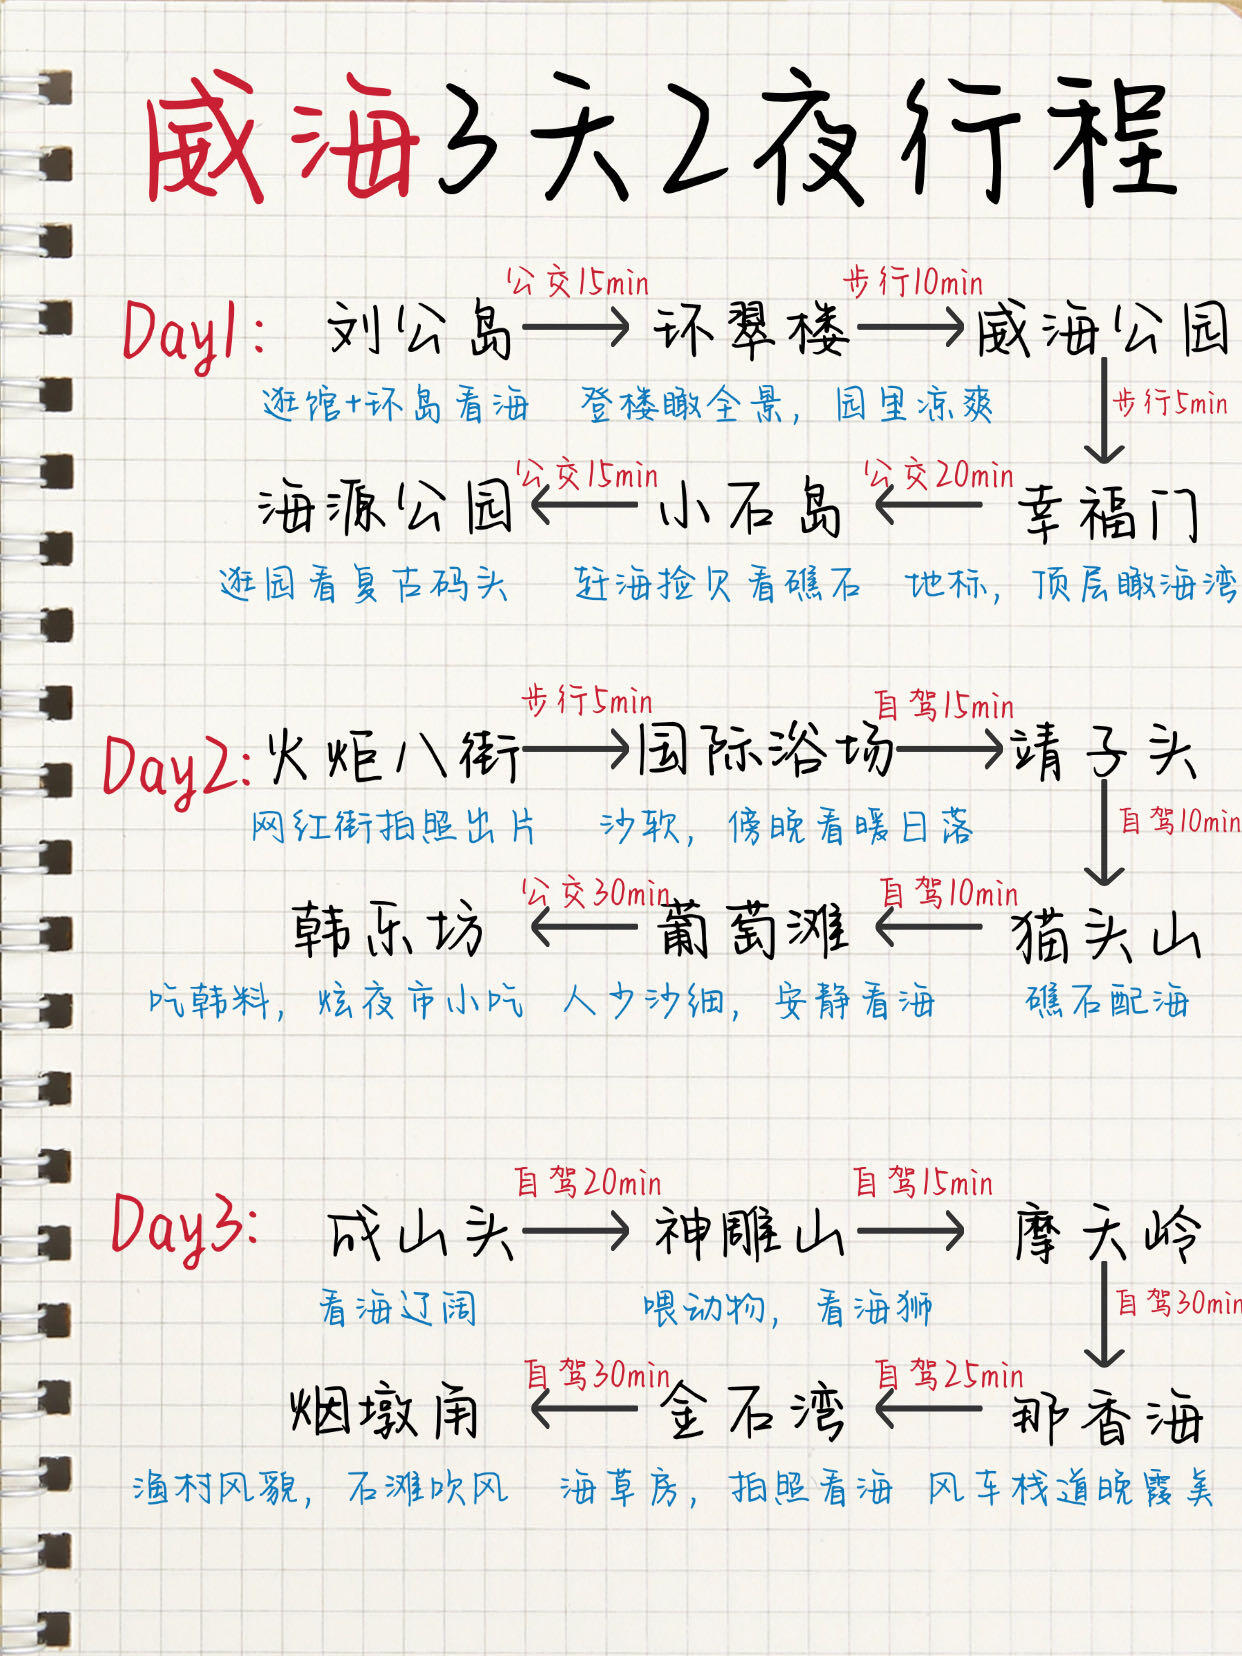 威海3天2夜行程
公交15min 步行10min
Day1: 刘公岛 环翠楼 威海公园
逛馆+环岛看海 登楼瞰全景，园里凉爽 步行5min
公交15min 公交20min
海源公园 小石岛 幸福门
逛园看复古码头 赶海捡贝看礁石 地标，顶层瞰海湾
步行5min 自驾15min
Day2: 火炬八街 国际浴场 靖子头
网红街拍照出片 沙软，傍晚看暖日落 自驾10min
公交30min 自驾10min
韩乐坊 葡萄滩 猫头山
吃韩料，炫夜市小吃 人少沙细，安静看海 礁石配海
自驾20min 自驾15min
Day3: 成山头 神雕山 摩天岭
看海辽阔 喂动物，看海狮 自驾30min
自驾30min 自驾25min
烟墩角 金石湾 那香海
渔村风貌，石滩吹风 海草房，拍照看海 风车栈道晚霞美